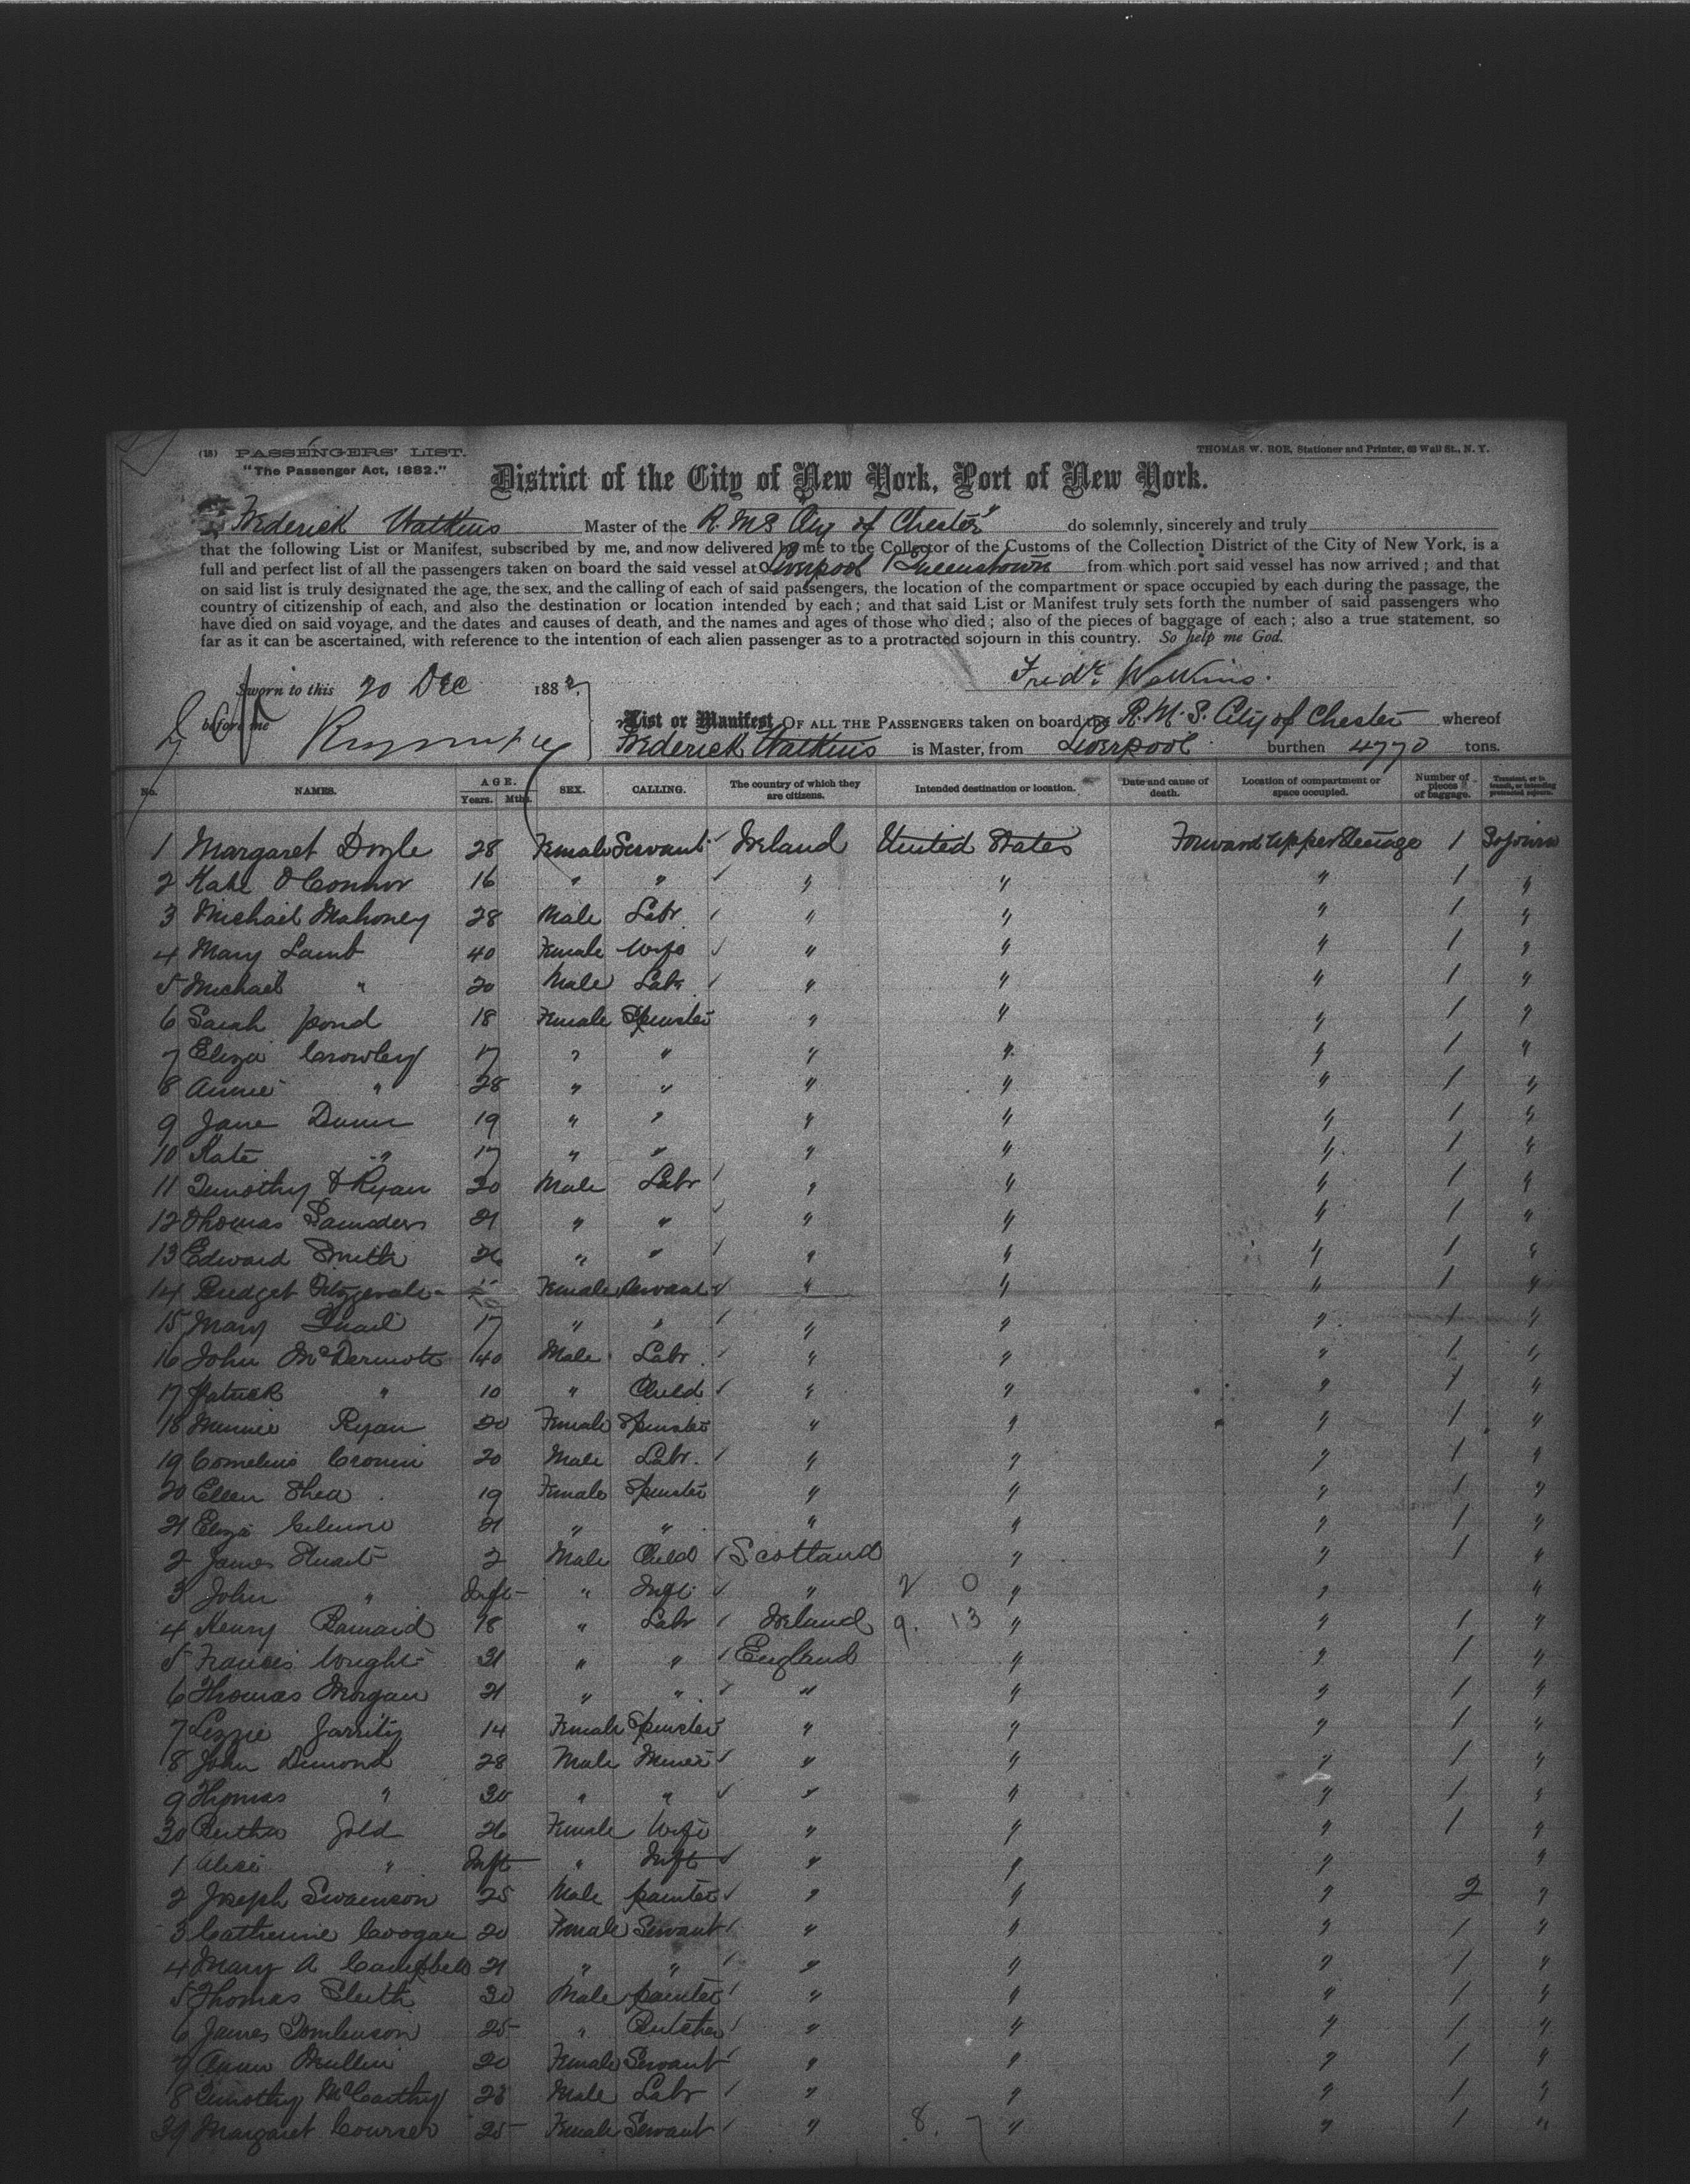 (18) PASSENGERS' LIST.
THOMAS W. ROE, Stationer and Printer, 69 Wall St., N. Y.
"The Passenger Act, 1882."
District of the City of New York, Port of New York.
I, Frederick Watkins Master of the R.M.S City of Chester do solemnly, sincerely and truly
that the following List or Manifest, subscribed by me, and now delivered by me to the Collector of the Customs of the Collection District of the City of New York, is a
full and perfect list of all the passengers taken on board the said vessel at Liverpool / Queenstown from which port said vessel has now arrived; and that
on said list is truly designated the age, the sex, and the calling of each of said passengers, the location of the compartment or space occupied by each during the passage, the
country of citizenship of each, and also the destination or location intended by each; and that said List or Manifest truly sets forth the number of said passengers who
have died on said voyage, and the dates and causes of death, and the names and ages of those who died; also of the pieces of baggage of each; also a true statement, so
far as it can be ascertained, with reference to the intention of each alien passenger as to a protracted sojourn in this country. So help me God.
Fredk. Watkins.
Sworn to this 20 Dec 188
before me
List or Manifest OF ALL THE PASSENGERS taken on board the R.M.S. City of Chester whereof
Frederick Watkins is Master, from Liverpool burthen 4770 tons.
No. NAMES. AGE. Years. Mths. SEX. CALLING. The country of which they are citizens. Intended destination or location. Date and cause of death. Location of compartment or space occupied. Number of pieces of baggage. Transient, or in transit, or intending protracted sojourn.
1 Margaret Doyle 28 Female Servant Ireland United States Forward Upper Steerage 1 Sojourn
2 Kate O'Connor 16 " " " " " 1 "
3 Michael Mahoney 28 Male Labr " " " 1 "
4 Mary Lamb 40 Female Wife " " " 1 "
5 Michael " 20 Male Labr " " " 1 "
6 Sarah Pond 18 Female Spinster " " " 1 "
7 Eliza Crowley 17 " " " " " 1 "
8 Annie " 28 " " " " " 1 "
9 Jane Dunn 19 " " " " " 1 "
10 Kate " 17 " " " " " 1 "
11 Timothy O'Ryan 30 Male Labr " " " 1 "
12 Thomas Saunders 21 " " " " " 1 "
13 Edward Smith 26 " " " " " 1 "
14 Bridget Fitzgerald Female Servant " " " 1 "
15 Mary Quail 17 " " " " " 1 "
16 John McDermott 40 Male Labr " " " 1 "
17 Patrick " 10 " Child " " " 1 "
18 Minnie Ryan 20 Female Spinster " " " 1 "
19 Cornelius Cronin 20 Male Labr. " " " 1 "
20 Ellen Shea 19 Female Spinster " " " 1 "
21 Eliza Gilmore 21 " " " " " 1 "
2 James Stuart 2 Male Child Scotland " " 1 "
3 John " Inft " Inft " 2 0 " " "
4 Henry Barnard 18 " Labr Ireland 9. 13 " " 1 "
5 Francis Wright 31 " " England " " 1 "
6 Thomas Morgan 21 " " " " " 1 "
7 Lizzie Garrity 14 Female Spinster " " " 1 "
8 John Dimond 28 Male Miner " " " 1 "
9 Thomas " 30 " " " " " 1 "
30 Bertha Gold 26 Female Wife " " " 1 "
1 Alice " Inft " Inft " " " "
2 Joseph Swainson 25 Male Painter " " " 2 "
3 Catherine Coogan 20 Female Servant " " " 1 "
4 Mary A Campbell 21 " " " " " 1 "
5 Thomas Sleith 30 Male Painter " " " 1 "
6 James Tomlinson 25 " Butcher " " " 1 "
7 Annie Mullin 20 Female Servant " " " 1 "
8 Timothy McCarthy 23 Male Labr " " " 1 "
39 Margaret Courser 25 Female Servant " 8. 7 " " 1 "